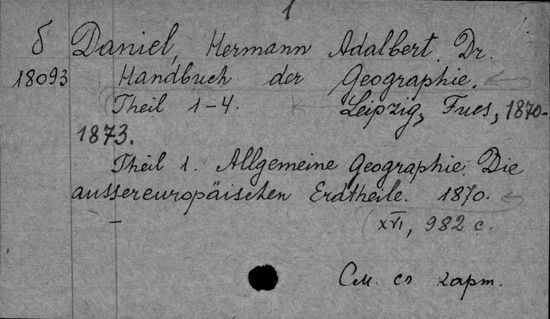 1
б Daniel, Hermann Adalbert, Dr.
18093 Handbuch der Geographie.
Theil 1-4. Leipzig, Fues, 1870-
1873.
Theil 1. Allgemeine Geographie. Die
aussereuropäischen Erdtheile. 1870.
– XVI, 982 с.
См. сл карт.